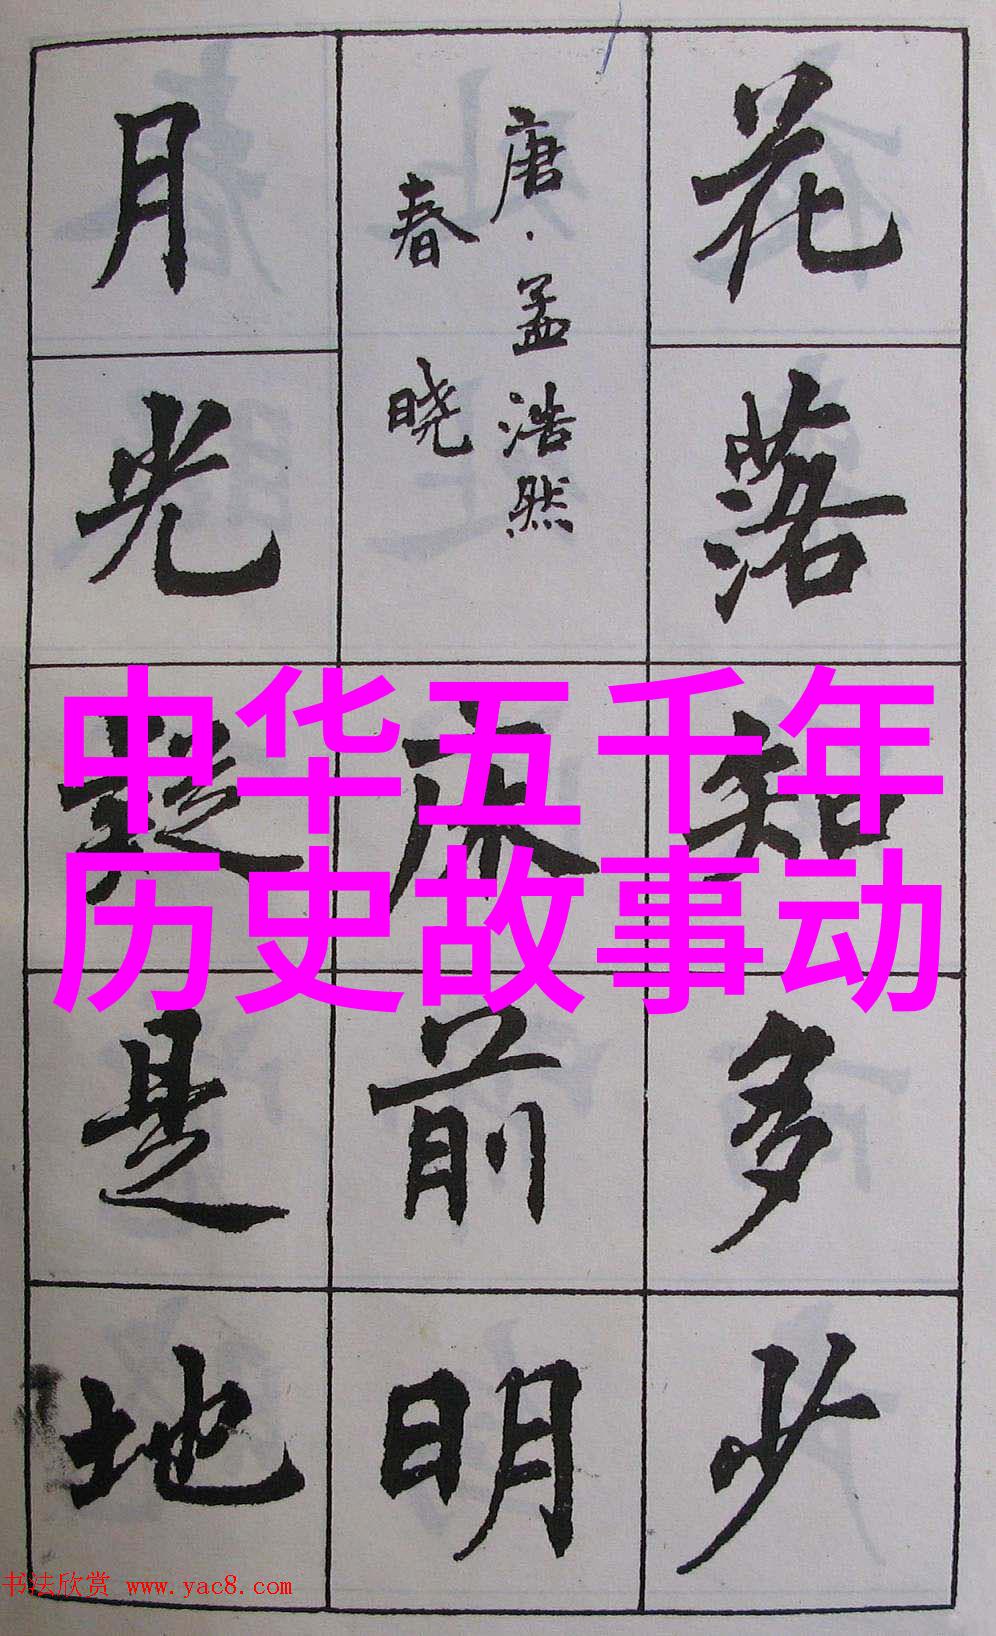 花落知多少
唐·孟浩然
春晓
床前明
月光疑是地
中华五千年
历史故事动
书法欣赏 www.yac8.com